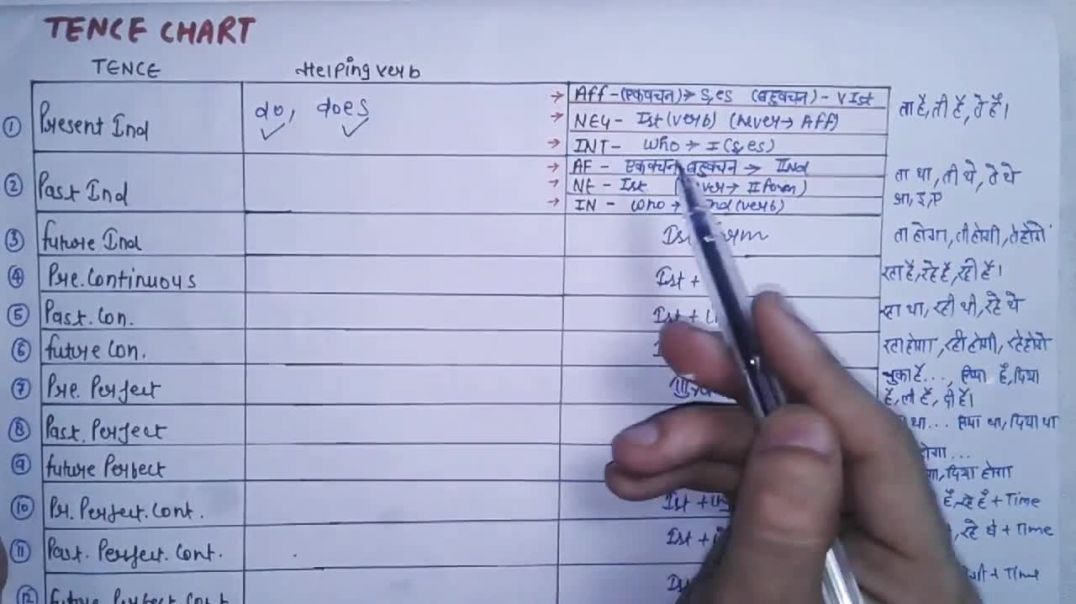 TENCE CHART
TENCE Helping verb
① Present Ind do, does Aff - (एकवचन) → s, es (बहुवचन) - V Ist ता है, ती है, ते हैं।
NEG - Ist (verb) (never → Aff)
INT - who → I (s, es)
② Past Ind AF - एकवचन बहुवचन → IInd ता था, ती थे, ते थे
NE - Ist → II form)
IN - who → (verb)
③ future Ind Ist ता होगा, ती होगी, ते होंगे
④ Pre. Continuous Ist + रहा है, रहे हैं, रही हैं।
⑤ Past. Con. Ist + रहा था, रही थी, रहे थे
⑥ future Con. रहा होगा, रही होगी, रहे होंगे
⑦ Pre. Perfect चुका है..., दिया
है, ली है, दी है।
⑧ Past. Perfect था... दिया था
⑨ future Perfect
दिया होगा
⑩ Pr. Perfect. Cont. Ist + रहे हैं + Time
⑪ Past. Perfect. Cont. Ist + रहे थे + Time
⑫ future Perfect Cont + Time